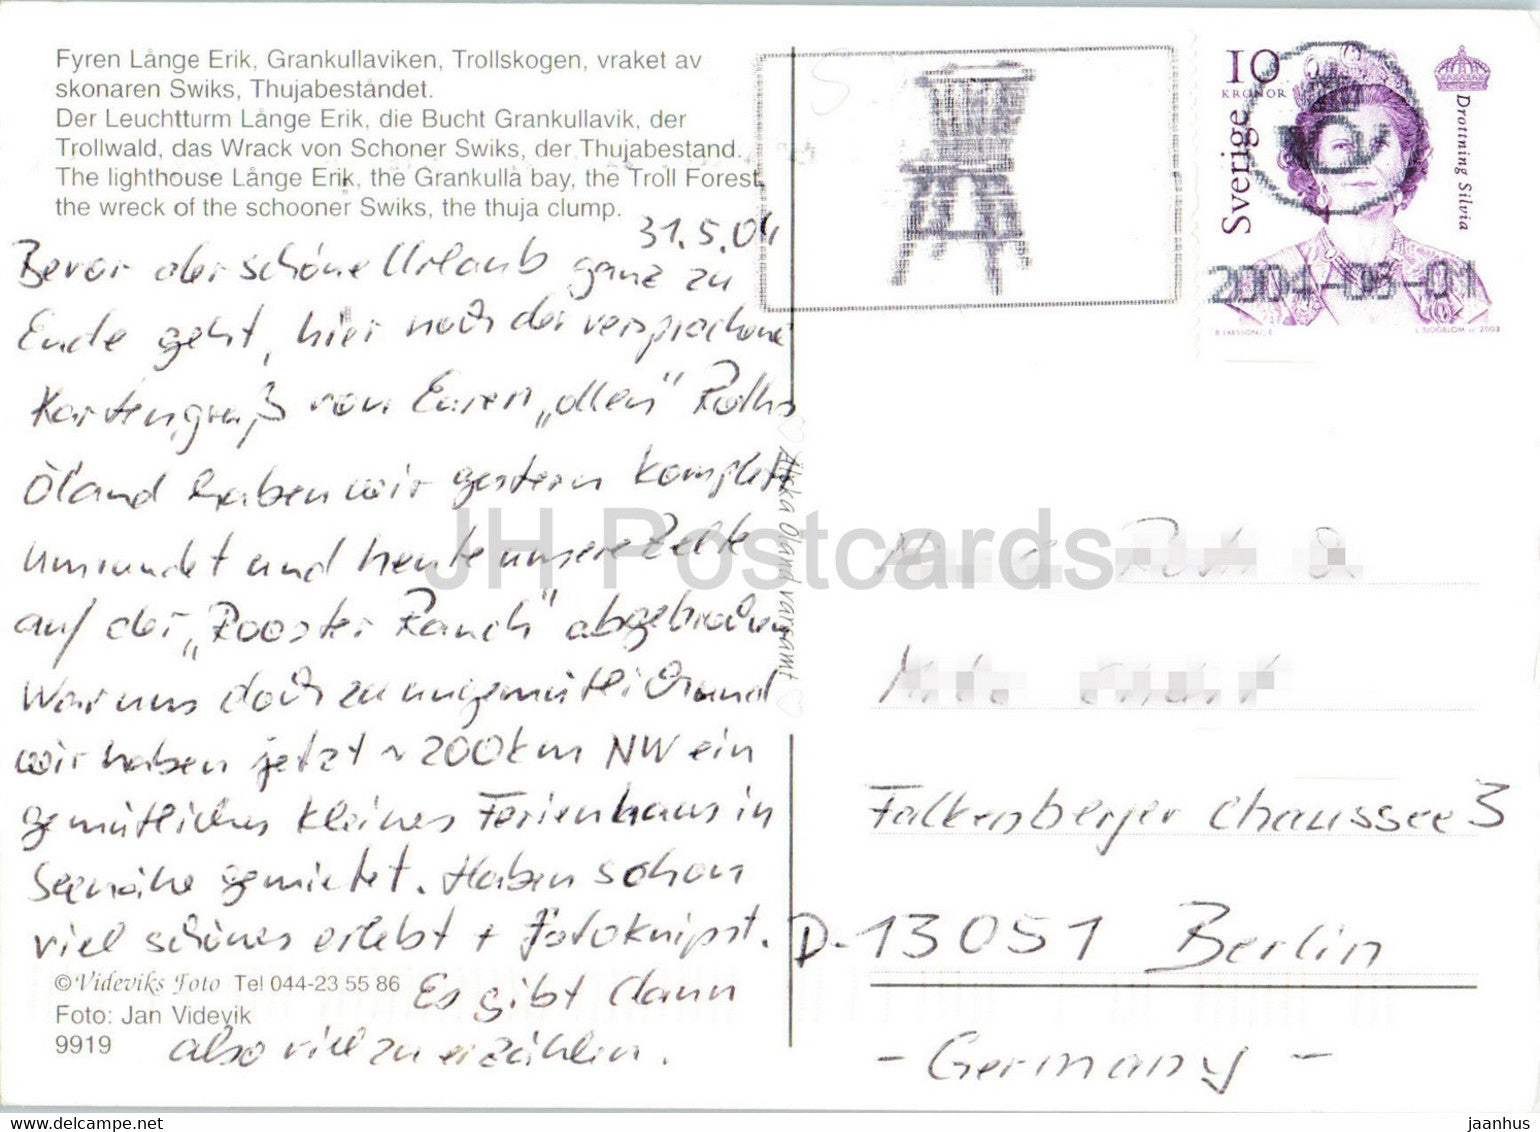 Fyren Långe Erik, Grankullaviken, Trollskogen, vraket av
skonaren Swiks, Thujabeståndet.
Der Leuchtturm Långe Erik, die Bucht Grankullavik, der
Trollwald, das Wrack von Schoner Swiks, der Thujabestand.
The lighthouse Långe Erik, the Grankulla bay, the Troll Forest,
the wreck of the schooner Swiks, the thuja clump.
31.5.04
Bevor der schöne Urlaub ganz zu
Ende geht, hier noch der versprochene
Kartengruß von Euren „ollen"
Öland haben wir gestern komplett
umrundet und heute unsere Zelte
auf der „Rooster Ranch" abgebrochen
War uns doch zu ungemütlich und
wir haben jetzt ~200km NW ein
gemütliches kleines Ferienhaus in
Seenähe gemietet. Haben schon
viel schönes erlebt + Fotoknipst.
Es gibt dann
also viel zu erzählen.
© Videviks Foto Tel 044-23 55 86
Foto: Jan Videvik
9919
♡ Älska Öland varsamt ♡
JH Postcards
10
KRONOR
Sverige
Drottning Silvia
2004-06-01
L SJÖÖBLOM sc 2003
Falkenberger Chaussee 3
D-13051 Berlin
- Germany -
www.delcampe.net
jaanhus